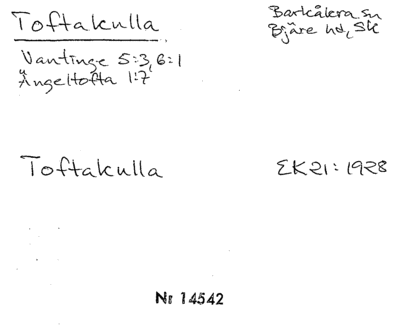 Toftakulla
Barkåkra sn
Bjäre hd, Sk
Vantinge 5:3, 6:1
Ängeltofta 1:7
Toftakulla
EK21:1928
Nr 14542